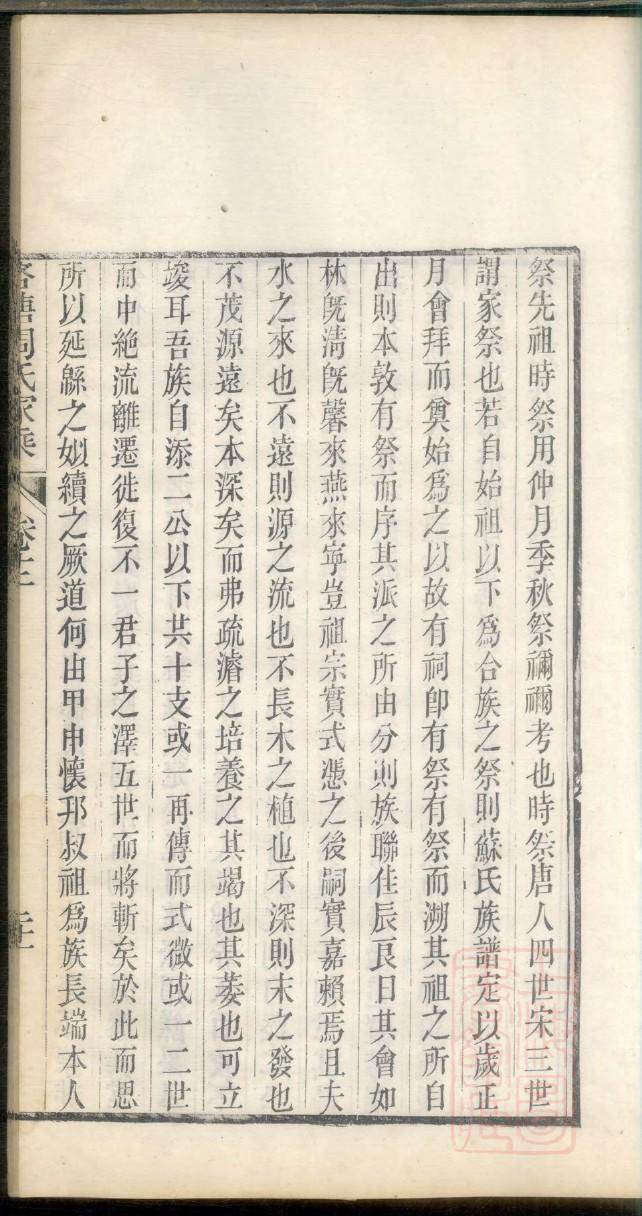 祭先祖時祭用仲月季秋祭禰禰考也時祭唐人四世宋三世
謂家祭也若自始祖以下爲合族之祭則蘇氏族譜定以歲正
月會拜而奠始爲之以故有祠卽有祭有祭而溯其祖之所自
出則本敦有祭而序其派之所由分則族聯佳辰良日其會如
林旣淸旣馨來燕來寧豈祖宗實式憑之後嗣實嘉賴焉且夫
水之來也不遠則源之流也不長木之植也不深則末之發也
不茂源遠矣本深矣而弗疏濬之培養之其竭也其萎也可立
竢耳吾族自添二公以下共十支或一再傳而式微或一二世
而中絶流離遷徙復不一君子之澤五世而將斬矣於此而思
所以延緜之姒續之厥道何由甲申懷邦叔祖爲族長端本人
周氏家乘 卷十二